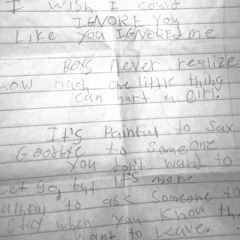 I wish I could
IGNORE You
Like You IGNORED me
Boys Never realize
how much one little thing
can hurt a Girl.
It's Painful to Say
Goodbye to Someone
You don't want to
let go but It's more
painful to ask Someone to
Stay when You know they
want to Leave.